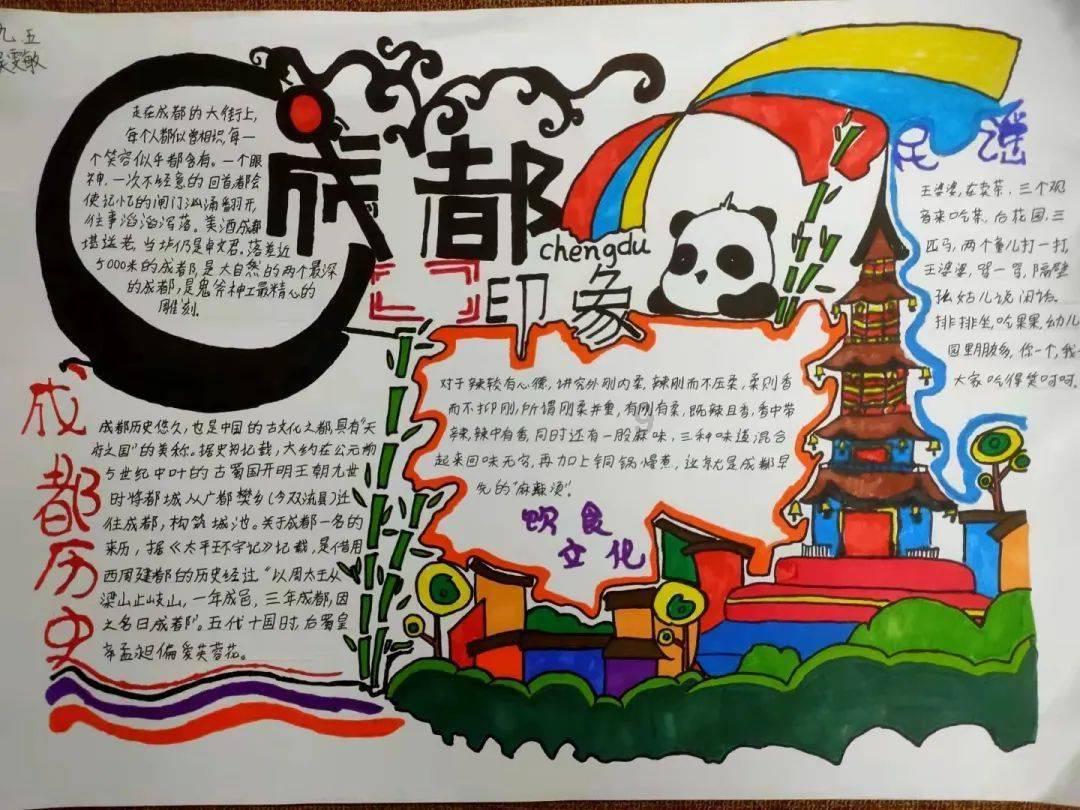 九、五
雯敏
走在成都的大街上,
每个人都似曾相识,每一
个笑容似乎都含有。一个眼
神,一次不经意的回首都会
使记忆的闸门汹涌翻开,
往事滔滔泻落。美酒成都
堪送老,当垆仍是卓文君。落差近
5000米的成都,是大自然的两个最深
的成都,是鬼斧神工最精心的
雕刻.
成都
chengdu
印象
民谣
王婆婆,在卖茶,三个观
音来吃茶.后花园,三
匹马,两个童儿打一打,
王婆婆,骂一骂,隔壁
张姑儿说闲话.
排排坐,吃果果,幼儿
园里朋友多,你一个,我一
大家吃得笑呵呵.
成都历史
成都历史悠久,也是中国的古文化之都,具有"天
府之国"的美称。据史书记载,大约在公元前
5世纪中叶的古蜀国开明王朝九世
时将都城从广都樊乡(今双流县)迁
往成都,构筑城池。关于成都一名的
来历,据《太平王不宇记》记载,是借用
西周建都的历史经过"以周太王从
梁山止岐山,一年成邑,三年成都,因
之名曰成都"。五代十国时,后蜀皇
帝孟昶偏爱芙蓉花。
对于辣较有心德,讲究外刚内柔,辣刚而不压柔,柔则香
而不抑刚,所谓刚柔并重,有刚有柔,既辣且香,香中带
辣,辣中有香,同时还有一股麻味,三种味道混合
起来回味无穷,再加上铜锅慢煮,这就是成都早
先的"麻辣烫".
饮食
文化